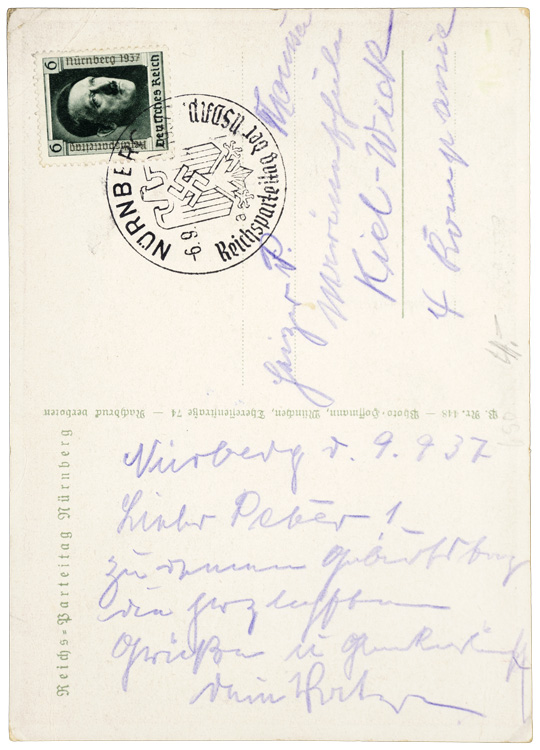 Nürnberg 1937
6
6
Deutsches Reich
Reichsparteitag
NÜRNBERG
Reichsparteitag der NSDAP.
6.9.
a
Heizer P.
Marineschule
Kiel-Wieck
4 Kompanie
4.-
P. Nr. 448 — Photo-Hoffmann, München, Theresienstraße 74 — Nachdruck verboten
Reichs-Parteitag Nürnberg
Nürberg d. 9.9 37
Lieber Peter!
zu deinem Geburtstag
die herzlichsten
Grüße u
dein Vater